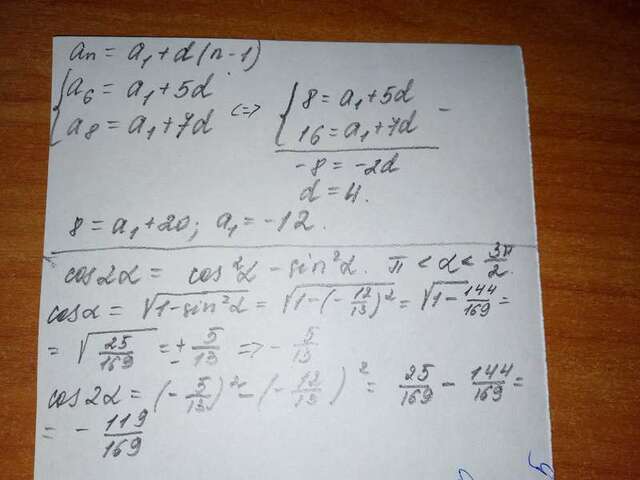 an = a₁ + d(n-1)
{ a₆ = a₁ + 5d
a₈ = a₁ + 7d
<=> { 8 = a₁ + 5d
16 = a₁ + 7d -
-8 = -2d
d = 4.
8 = a₁ + 20; a₁ = -12.
cos2α = cos²α - sin²α. π < α < 3π/2.
cosα = √(1-sin²α) = √(1-(-12/13)²) = √(1-144/169) =
= √(25/169) = ± 5/13 => - 5/13
cos2α = (-5/13)² - (-12/13)² = 25/169 - 144/169 =
= - 119/169